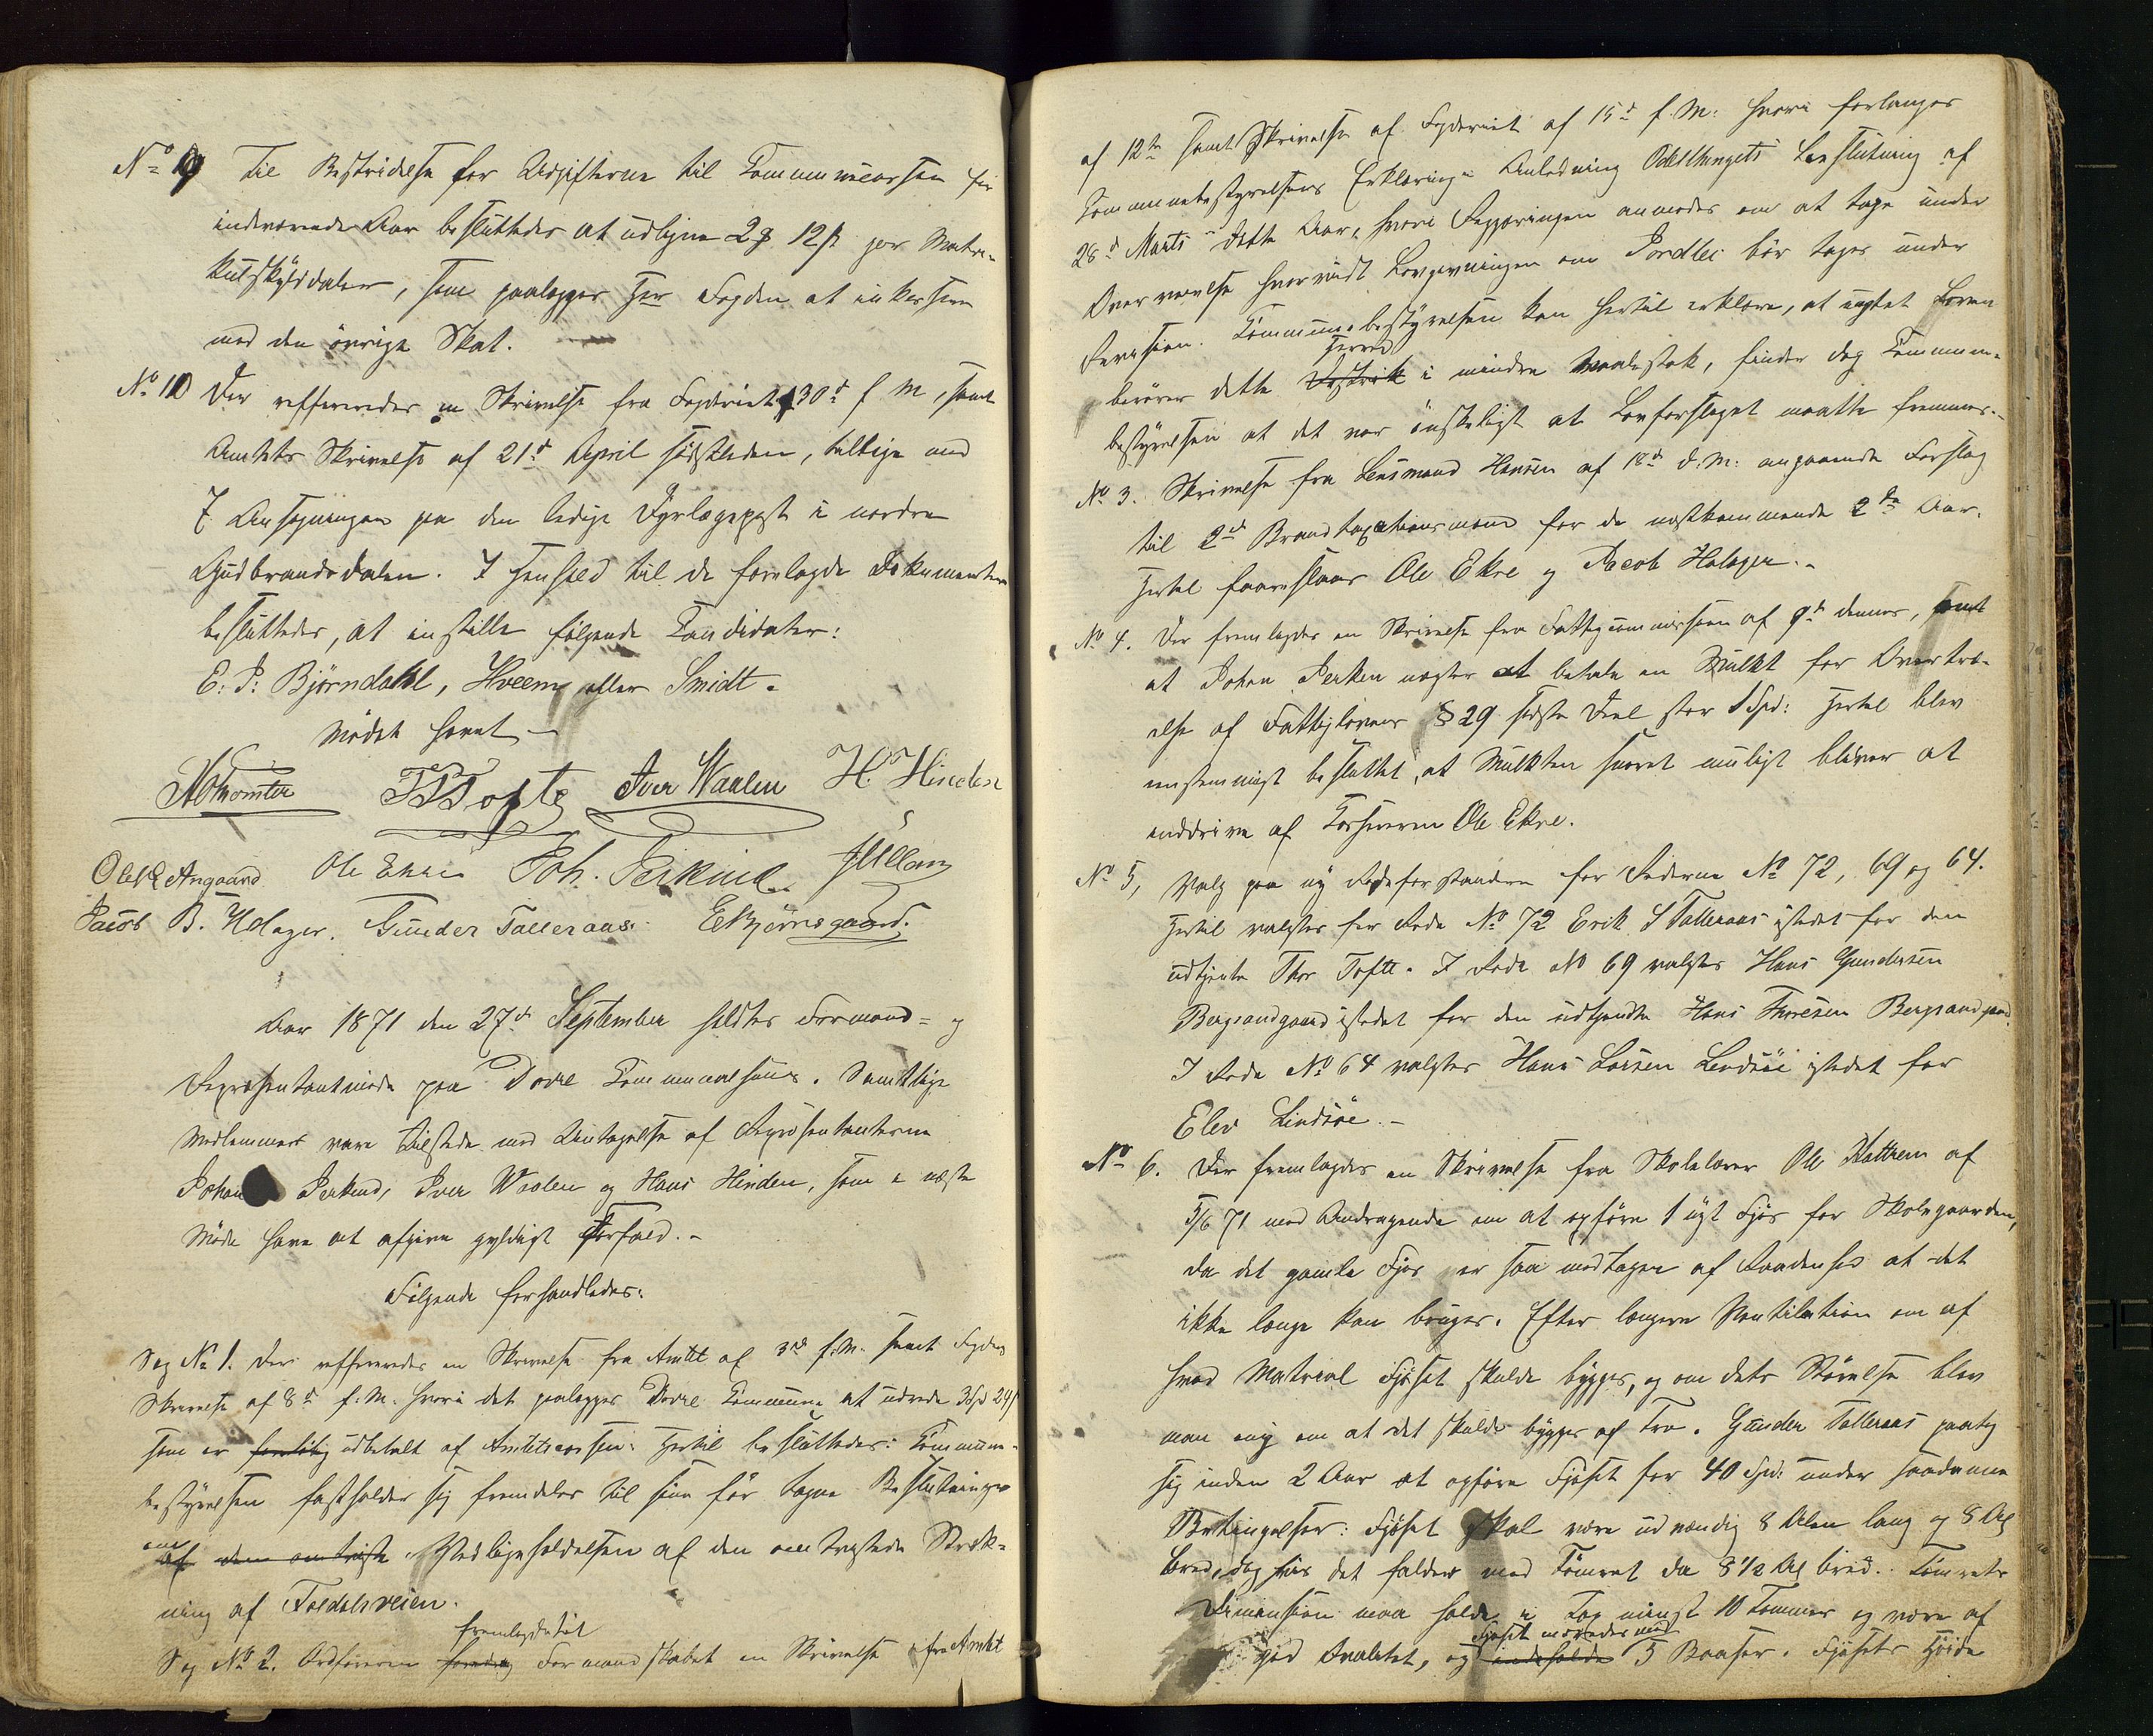 No 9 Til Bestridelse for Udgifterne til Kommunecassen for
indeværende Aar besluttedes at udligne 2 ₰ 12 ß per Matri-
kulskylddaler, som paalægges Hr Fogden at inkassere
med den övrige Skat.
No 10 Der reffereredes en Skrivelse fra Fogderiet 30d f M, samt
Amtets Skrivelse af 21d April sidstleden, tilligemed
7 Ansøgninger paa den ledige Dyrlægepost i nordre
Gudbrandsdalen. I Henhold til de forelagde Dokumenter
besluttedes, at instille følgende Kandidater:
E. P: Björndahl, Hveem eller Smidt.
Mödet hævet
T Tofte Iver Waalen H. Hinden
Ole Angaard Ole Ekre Joh. Jerkind
Jacob B. Holager. Gunder Talleraas. E Bjørnsgaard.
Aar 1871 den 27d September holdtes Formand- og
Repræsentantmöde paa Dovre Kommunalhuus. Samtlige
Medlemmer vare tilstede med Undtagelse af Repræsentanterne
Johan Jerkind, Iver Waalen og Hans Hinden, som i næste
Möde have at afgive gyldigt Forfald.
Følgende forhandledes:
Sag No 1. Der reffereredes en Skrivelse fra Amtet af 3d f.M. samt Fogdens
Skrivelse af 8d f.M. hvori det paalægges Dovre Kommune at udrede 3 Spd 24 ß
som er foreløbig udbetalt af Amtscassen. Hertil besluttedes: Kommune-
bestyrelsen fastholder sig fremdeles til sin før tagne Beslutning
om af den omtviste Vedligeholdelsen af den omtvistede Stræk-
ning af Foldalsveien.
fremlagde til
Sag No 2. Ordføreren foredrag Formandskabet en Skrivelse fra Amtet
af 12te samt Skrivelse af Fogderiet af 15d f.M. hvori forlanges
Kommunebestyrelsens Erklæring i Anledning Odelsthingets Beslutning af
28d Marts dette Aar, hvori Regjeringen anmodes om at tage under
Overveielse hvorvidt Lovgivningen om Jordleie bör tages under
Revision. Kommunebestyrelsen kan hertil erklære, at uagtet Loven
Herred
berører dette Distrikt i mindre Maalestok, finder dog Kommune-
bestyrelsen at det var önskeligt at Lovforslaget maatte fremmes.
No 3. Skrivelse fra Lensmand Hansen af 18d d.M. angaaende Forslag
til 2d Brandtaxationsmænd for de næstkommende 2de Aar.
Hertil foreslaaes Ole Ekre og Jacob Holager.
No 4. Der fremlagdes en Skrivelse fra Fattigcommissionen af 9de dennes, samt
at Johan Jerkin nægter at betale en Mulkt for Overtræ-
else af Fattiglovens § 29 sidste Deel stor 1 Spd: Hertil blev
enstemmigt besluttet, at Mulkten snarest muligt bliver at
inddrive af Kassereren Ole Ekre.
No 5, Valg paa ny Rodeforstandere for Roderne No 72, 69 og 64.
Hertil valgtes for Rode No 72 Erik S Talleraas istedet for den
udtjente Thor Tofte. I Rode No 69 valgtes Hans Gundersen
Bergsandgaard istedet for den udtjente Hans Thoresen Bergsandgaard.
I Rode No 64 valgtes Hans Larsen Lindsöe istedet for
Elev Lindsöe.
No 6. Der fremlagdes en Skrivelse fra Skolelærer Ole Hattrem af
5/6 71 med Andragende om at opföre 1 nyt Fjøs for Skolegaarden,
da det gamle Fjøs er saa medtagen af Raadenhed at det
ikke længe kan bruges. Efter længere Ventilation om af
hvad Matrial Fjøset skulde bygges, og om dets Størrelse blev
man enig om at det skulde bygges af Træ. Gunder Talleraas paatog
sig inden 2 Aar at opføre Fjøset for 40 Spd. under saadanne
Betingelser: Fjøset skal være udvendig 8 Alen lang og 8 Al
bred, dog hvis det falder med Tömret da 8 1/2 Al bred. Tömrets
Dimension maa holde i Top mindst 10 Tommer og være af
Fjøset indredes med
god Qvalitet, og indeholde 5 Baaser. Fjøsets Høide